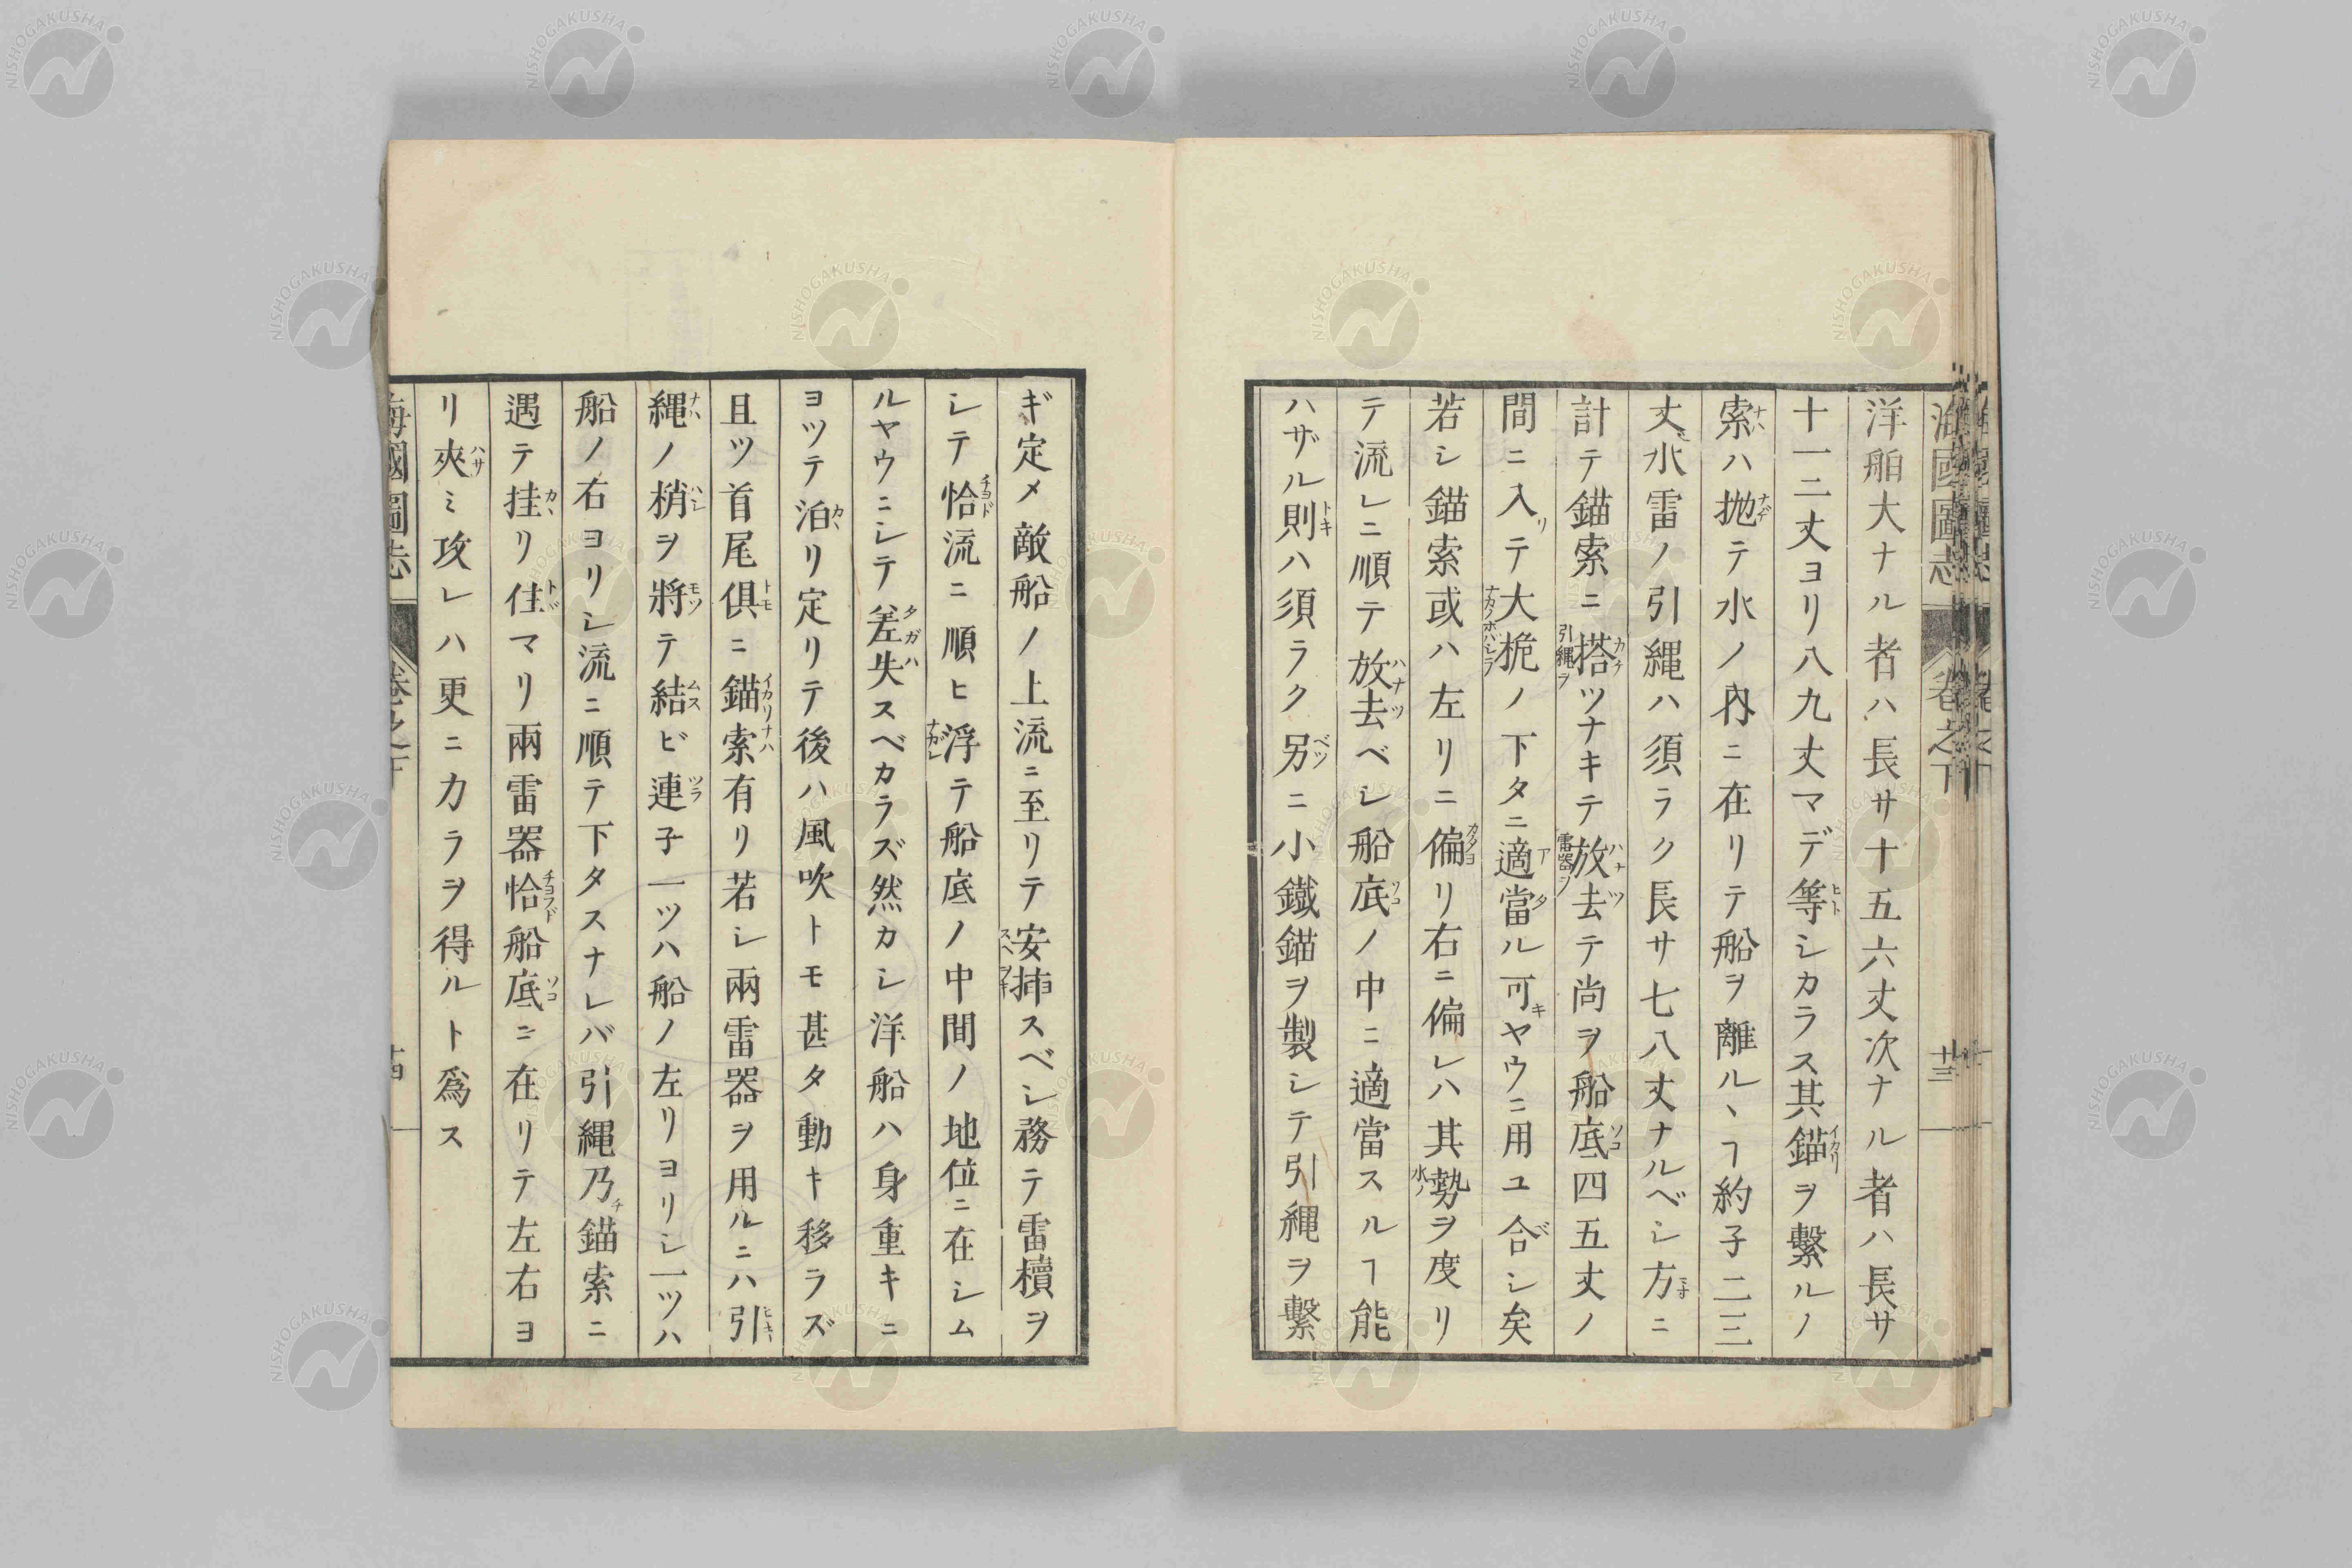 海國圖志 卷之下 十三
洋舶大ナル者ハ長サ十五六丈次ナル者ハ長サ
十一二丈ヨリ八九丈マデ等シカラス其錨ヲ繫ルノ
索ハ抛テ水ノ內ニ在リテ船ヲ離ルヽヿ約子二三
丈水雷ノ引縄ハ須ラク長サ七八丈ナルベシ方ニ
計テ錨索ニ搭ツナキテ放去テ尚ヲ船底四五丈ノ
間ニ入テ大桅ノ下タニ適當ル可キヤウニ用ユ合シ矣
若シ錨索或ハ左リニ偏リ右ニ偏レハ其勢ヲ度リ
テ流レニ順テ放去ベシ船底ノ中ニ適當スルヿ能
ハザル則ハ須ラク另ニ小鐵錨ヲ製シテ引縄ヲ繫
ギ定メ敵船ノ上流ニ至リテ安揷スベシ務テ雷櫝ヲ
シテ恰流ニ順ヒ浮テ船底ノ中間ノ地位ニ在シム
ルヤウニシテ差失スベカラズ然カシ洋船ハ身重キニ
ヨツテ泊リ定リテ後ハ風吹トモ甚タ動キ移ラズ
且ツ首尾俱ニ錨索有リ若シ兩雷器ヲ用ルニハ引
縄ノ梢ヲ將テ結ビ連子一ツハ船ノ左リヨリシ一ツハ
船ノ右ヨリシ流ニ順テ下タスナレバ引縄乃錨索ニ
遇テ挂リ住マリ兩雷器恰船底ニ在リテ左右ヨ
リ夾ミ攻レハ更ニ力ラヲ得ルト爲ス
海國圖志 卷之下 十四
NISHOGAKUSHA